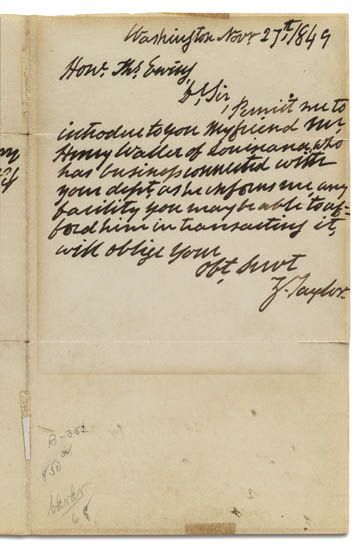 Washington Novr 27th/1849
Honl. Ths. Ewing,
Dr Sir,
Permit me to
introduce to you my friend Mr.
Henry Waller of Louisiana, who
has business connected with
your dept, as he informs me any
facility you may be able to af-
ford him in transacting it,
will oblige your
Obt. Servt
Z. Taylor.
B-352
850